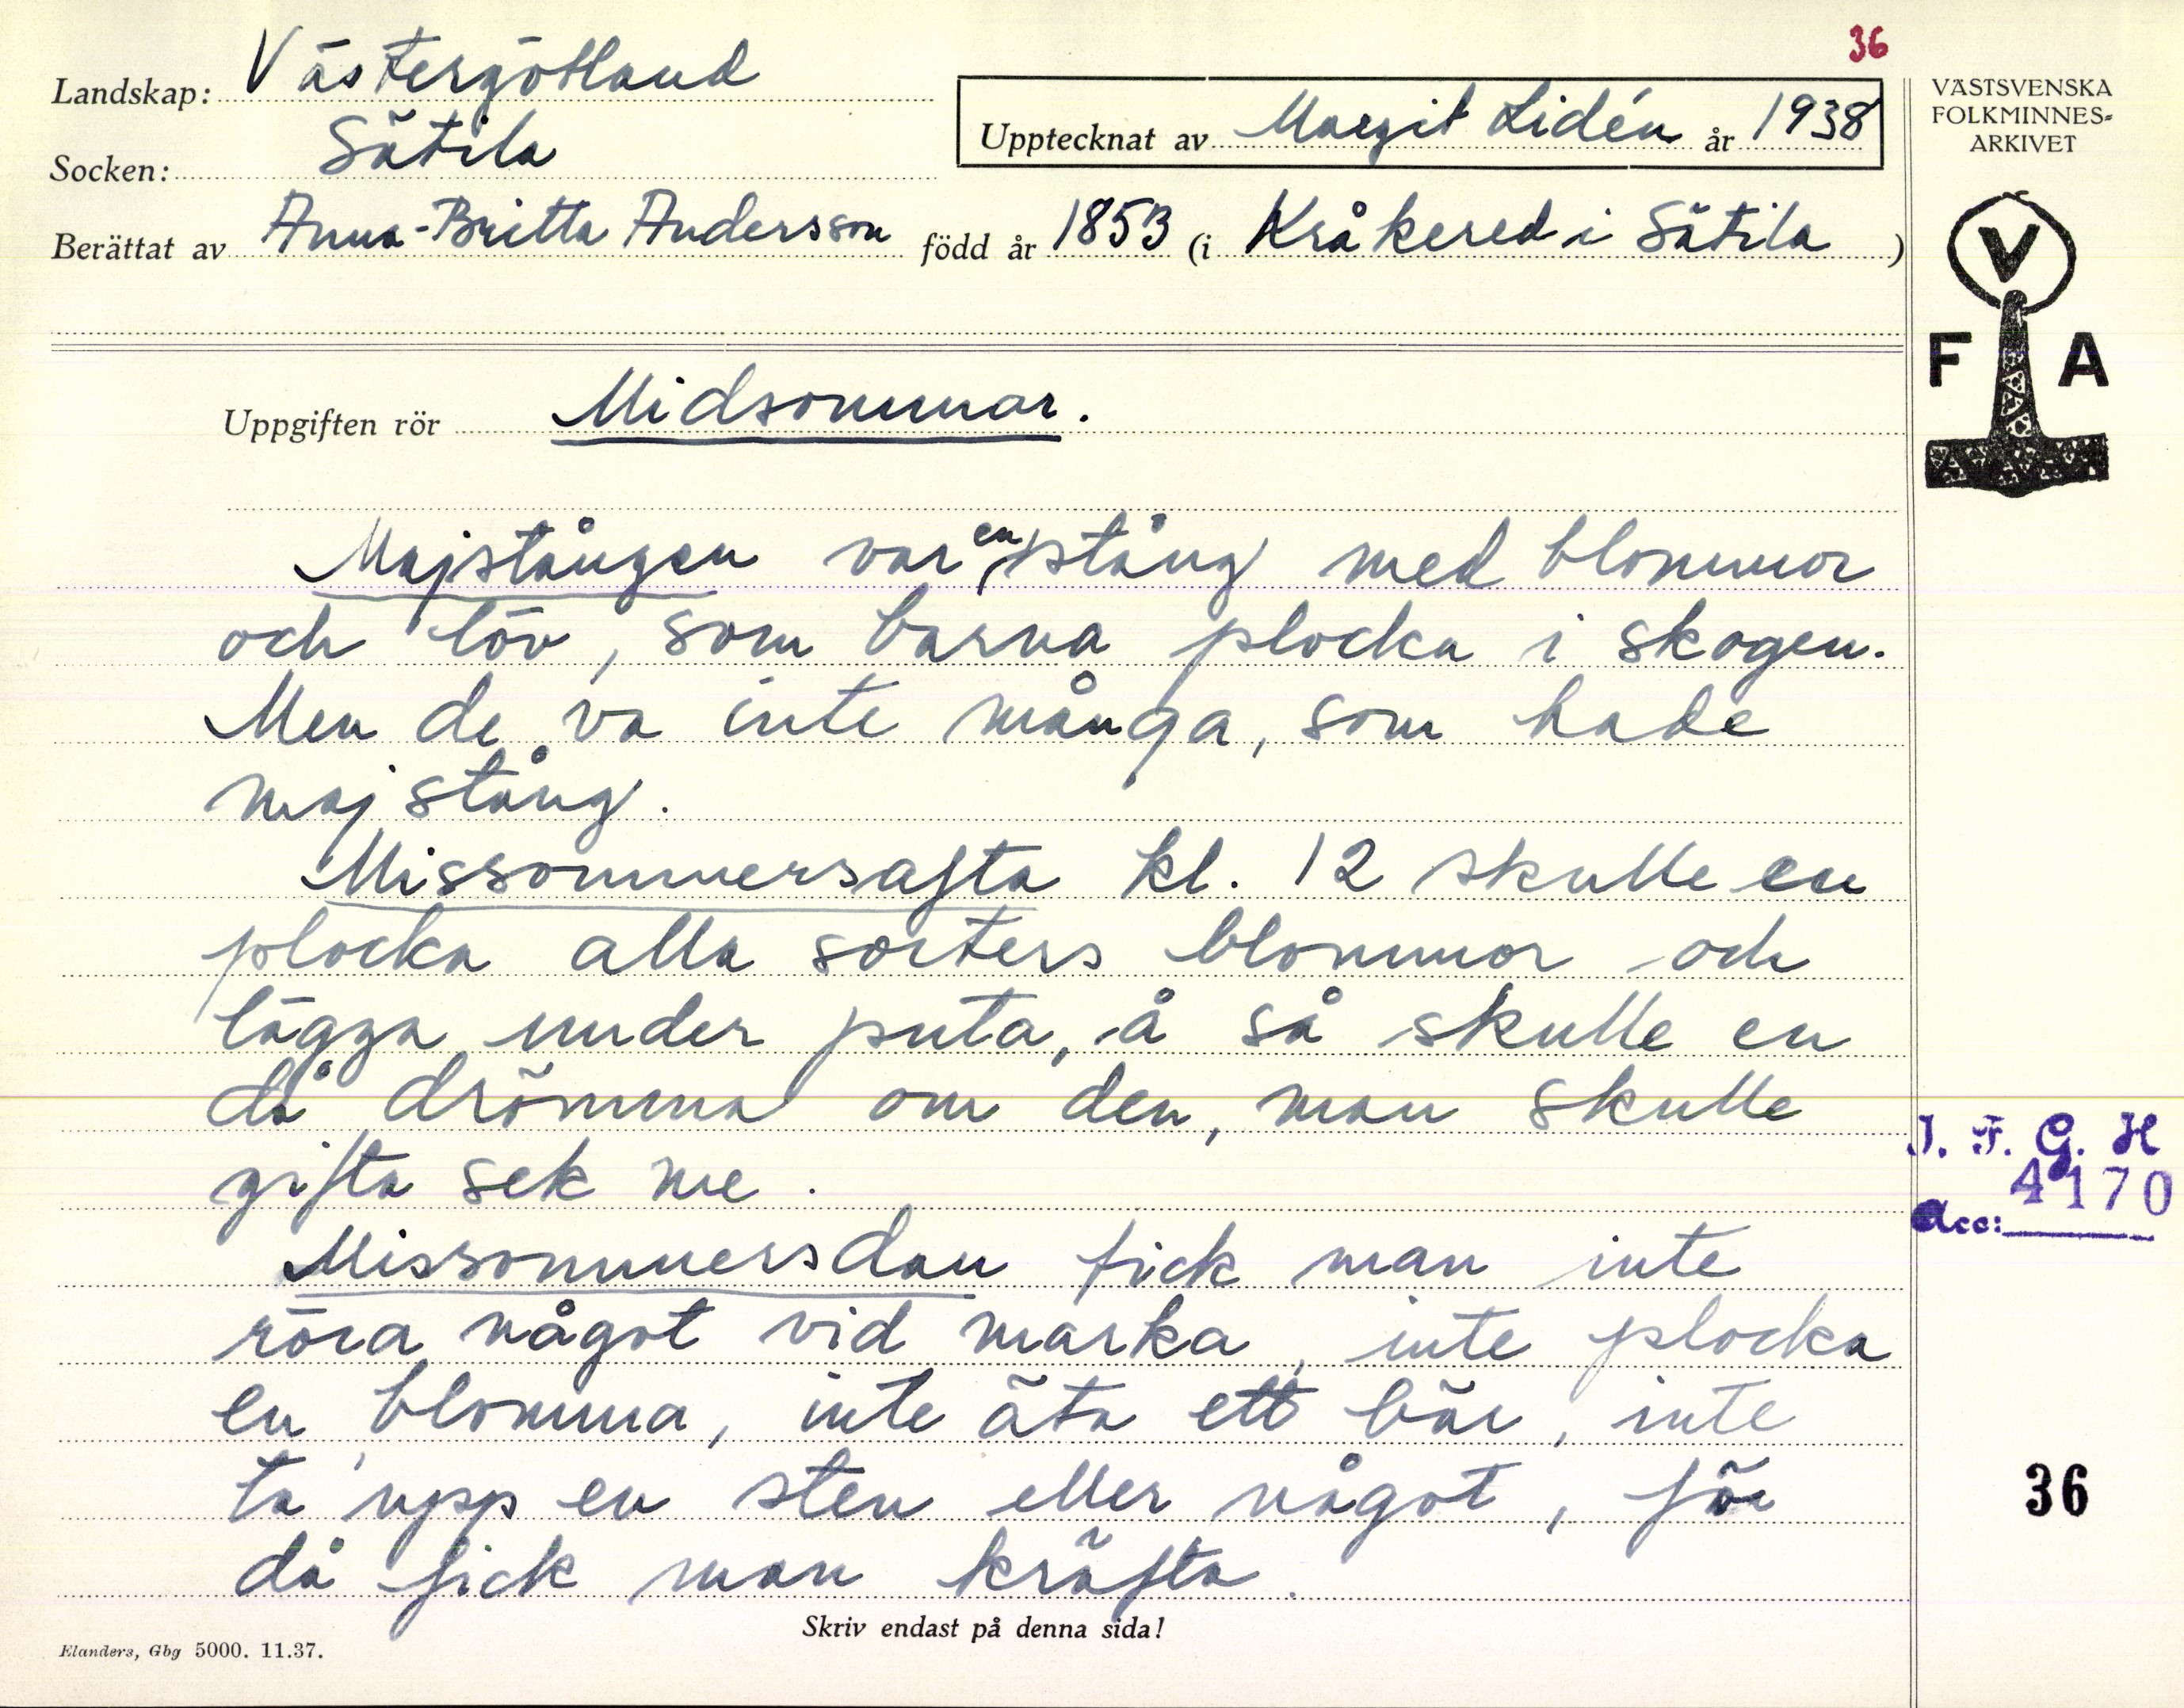 36
Landskap: Västergötland
Socken: Sätila
Upptecknat av Margit Lidén år 1938
Berättat av Anna-Britta Andersson född år 1853 (i Kråkered i Sätila)
VÄSTSVENSKA
FOLKMINNES-
ARKIVET
V
F A
Uppgiften rör Midsommar.
Majstången var en stång med blommor
och löv, som barna plocka i skogen.
Men de va inte många, som hade
majstång.
Missommersafta kl. 12 skulle en
plocka alla sorters blommor och
lägga under puta, å så skulle en
då drömma om den, man skulle
gifta sek me.
Missommersdan fick man inte
röra något vid marka, inte plocka
en blomma, inte äta ett bär, inte
ta upp en sten eller något, för
då fick man kräfta.
I. F. G. H
4170
Acc:
36
Skriv endast på denna sida!
Elanders, Gbg 5000. 11.37.